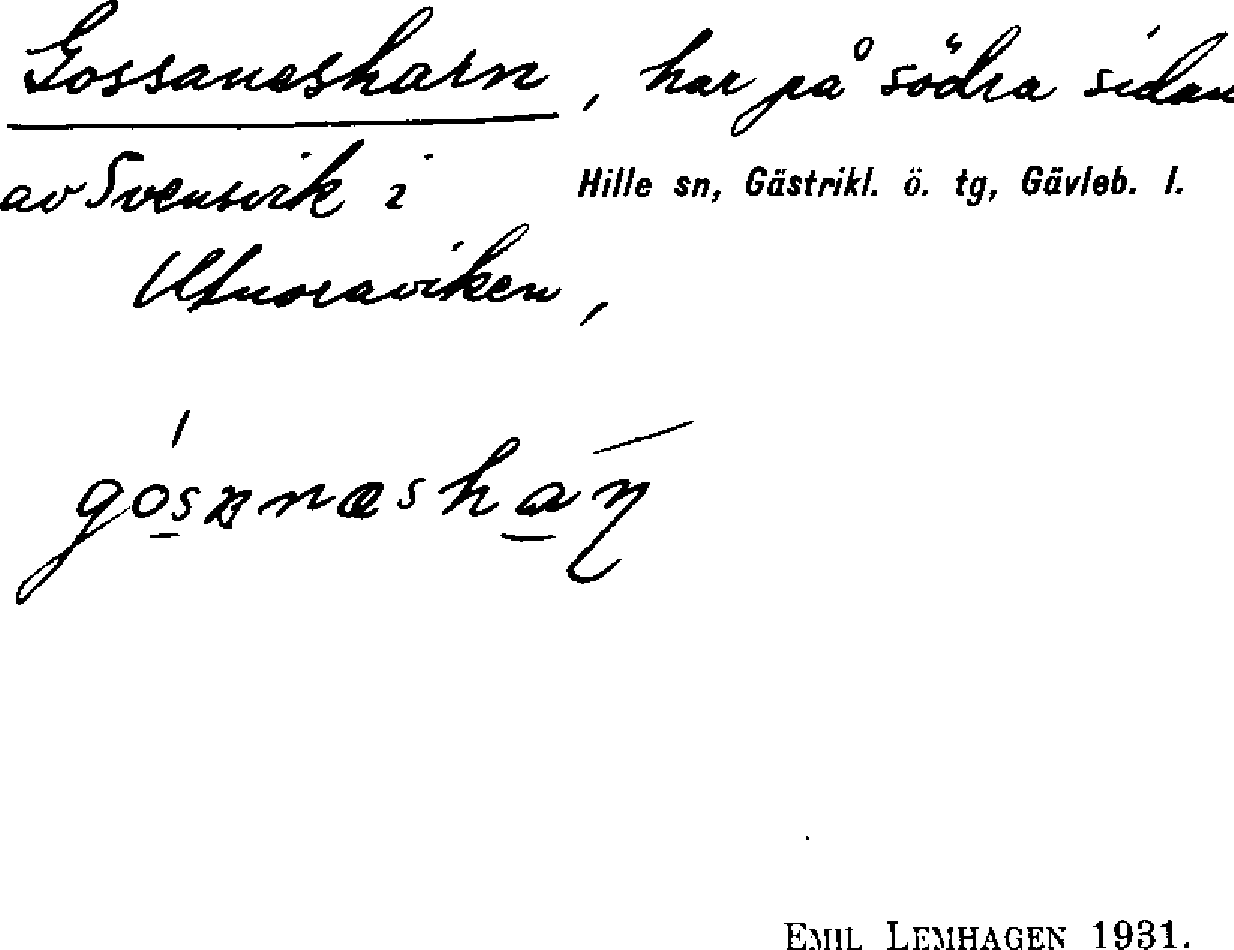 Gossanesharn, har på södra sidan
av Svensvik i
Hille sn, Gästrikl. ö. tg, Gävleb. l.
Utnoraviken,
EMIL LEMHAGEN 1931.